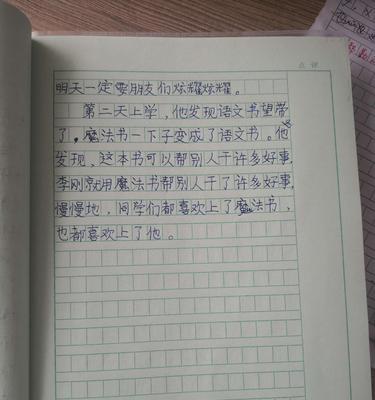 点评
明天一定要朋友们炫耀炫耀。
第二天上学，他发现语文书望带
了，魔法书一下子变成了语文书。他
发现，这本书可以帮别人干许多好事，
李刚就用魔法书帮别人干了许多好事，
慢慢地，同学们都喜欢上了魔法书，
也都喜欢上了他。